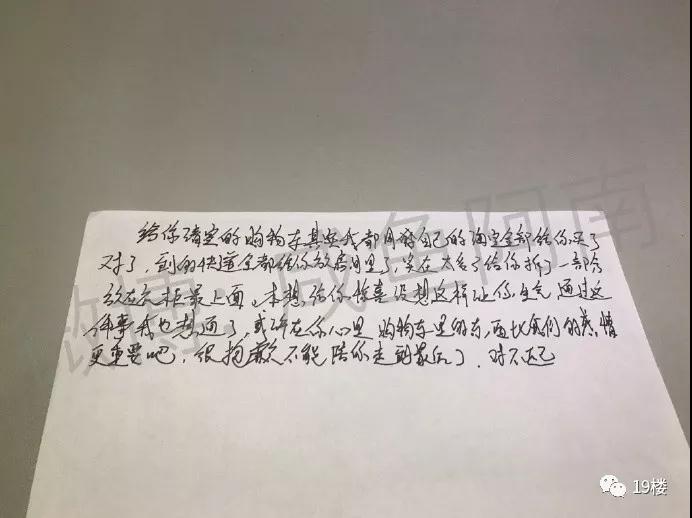 给你清空的购物车其实我都用我自己的淘宝全部给你买了
对了，到的快递全都给你放房间里了，实在太多了给你拆了一部分
放在衣柜最上面。本想给你惊喜没想这样让你生气，通过这
件事我也想通了，或许在你心里购物车里的东西比我们的感情
更重要吧，很抱歉不能陪你走到最后了，对不起
微博：咸鱼阿南
19楼